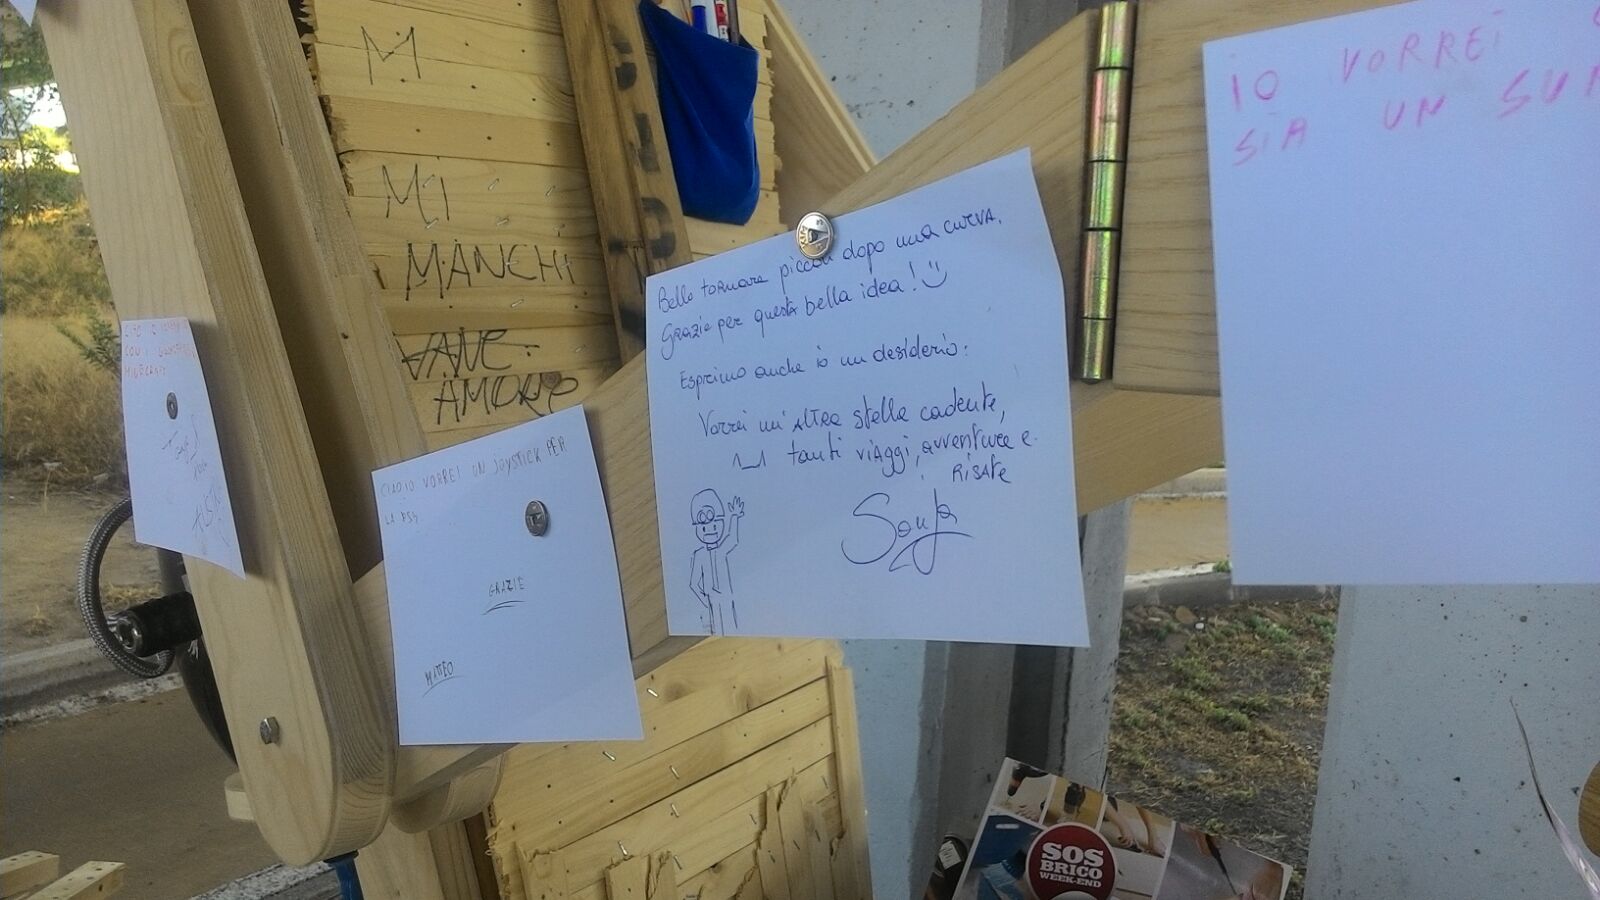 M
MI
MANCHI
VANE
AMORE
CON I
MINECRAFT
CIAO IO VORREI UN JOYSTICK PER
LA PS4
GRAZIE
MATTEO
Bello tornare piccoli dopo una curva.
Grazie per questa bella idea!
Esprimo anche io un desiderio:
Vorrei un'altra stella cadente,
tanti viaggi, avventure e
risate
Sonja
IO VORREI
SIA UN
SOS
BRICO
WEEK-END